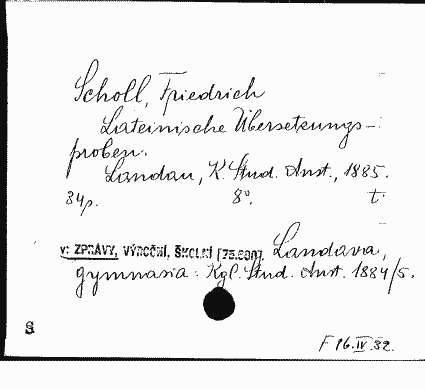 Scholl, Friedrich
Lateinische Übersetzungs-
proben.
Landau, K. Stud. Anst., 1885.
34p. 8°. t.
v: ZPRÁVY, VÝROČNÍ, ŠKOLNÍ [75.680], Landava,
gymnasia: Kgl. Stud. Anst. 1884/5.
S
F 16.IV.32.